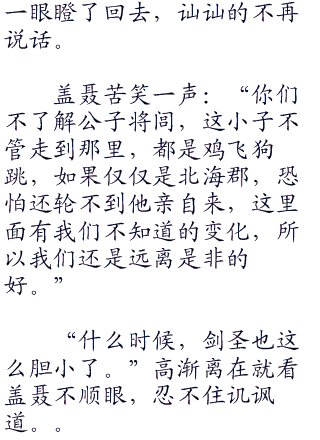 一眼瞪了回去，讪讪的不再
说话。
盖聂苦笑一声：“你们
不了解公子将闾，这小子不
管走到那里，都是鸡飞狗
跳，如果仅仅是北海郡，恐
怕还轮不到他亲自来，这里
面有我们不知道的变化，所
以我们还是远离是非的
好。”
“什么时候，剑圣也这
么胆小了。”高渐离在就看
盖聂不顺眼，忍不住讥讽
道。。